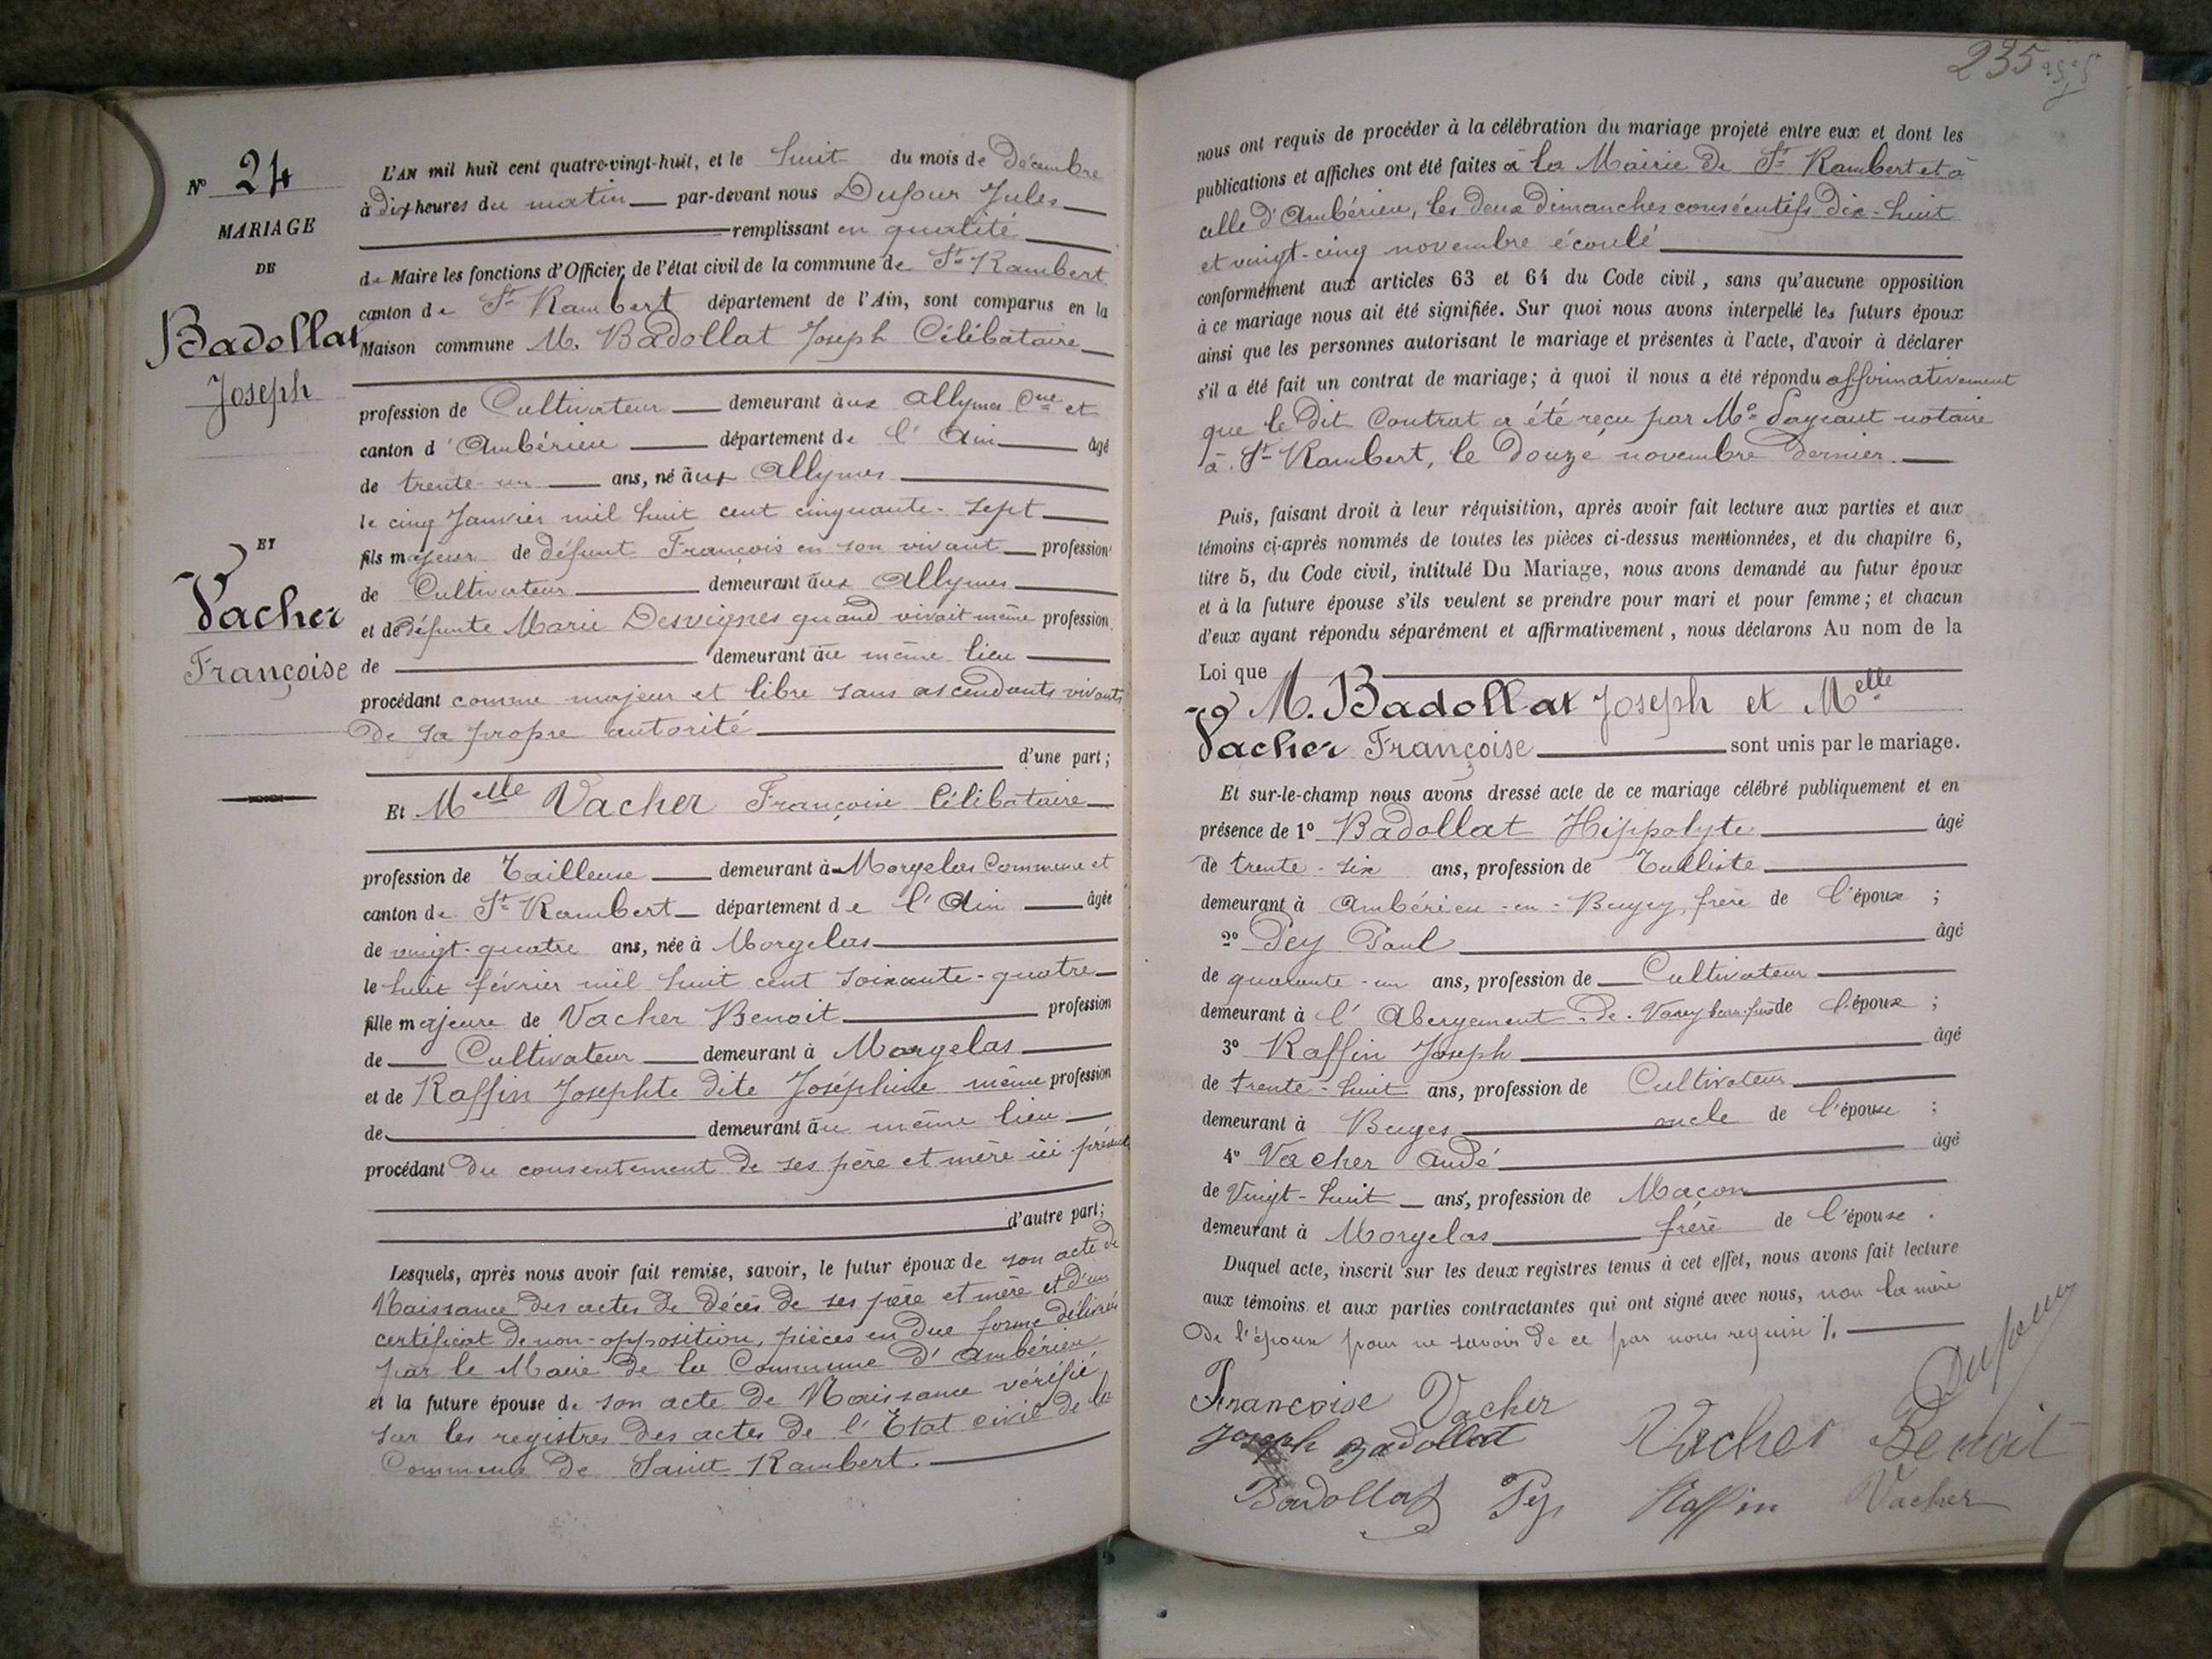 235
N° 24
MARIAGE
DE
Badollat
Joseph
ET
Vacher
Françoise
L'AN mil huit cent quatre-vingt-huit, et le huit du mois de Décembre
à dix heures du matin par-devant nous Dufour Jules
remplissant en qualité
de Maire les fonctions d'Officier de l'état civil de la commune de St Rambert
canton de St Rambert département de l'Ain, sont comparus en la
Maison commune M. Badollat Joseph Célibataire
profession de Cultivateur demeurant aux Allymes Cne et
canton d'Ambérieu département de l'Ain âgé
de trente-un ans, né aux Allymes
le cinq Janvier mil huit cent cinquante-sept
fils majeur de défunt François en son vivant profession
de Cultivateur demeurant aux Allymes
et de défunte Marie Desvignes quand vivait même profession
de demeurant au même lieu
procédant comme majeur et libre sans ascendants vivants
de sa propre autorité
d'une part;
Et Melle Vacher Françoise Célibataire
profession de Tailleuse demeurant à Morgelas Commune et
canton de St Rambert département de l'Ain âgée
de vingt-quatre ans, née à Morgelas
le huit février mil huit cent soixante-quatre
fille majeure de Vacher Benoit profession
de Cultivateur demeurant à Morgelas
et de Raffin Josephte dite Joséphine même profession
de demeurant au même lieu
procédant du consentement de ses père et mère ici présents
d'autre part;
Lesquels, après nous avoir fait remise, savoir, le futur époux de son acte de
Naissance des actes de décès de ses père et mère et d'un
certificat de non-opposition, pièces en due forme délivrés
par le Maire de la Commune d'Ambérieu
et la future épouse de son acte de Naissance vérifié
sur les registres des actes de l'Etat civil de la
Commune de Saint Rambert.
nous ont requis de procéder à la célébration du mariage projeté entre eux et dont les
publications et affiches ont été faites à la Mairie de St Rambert et à
celle d'Ambérieu, les deux dimanches consécutifs dix-huit
et vingt-cinq novembre écoulé
conformément aux articles 63 et 64 du Code civil, sans qu'aucune opposition
à ce mariage nous ait été signifiée. Sur quoi nous avons interpellé les futurs époux
ainsi que les personnes autorisant le mariage et présentes à l'acte, d'avoir à déclarer
s'il a été fait un contrat de mariage; à quoi il nous a été répondu affirmativement
que le dit Contrat a été reçu par Me notaire
à St Rambert, le douze novembre dernier.
Puis, faisant droit à leur réquisition, après avoir fait lecture aux parties et aux
témoins ci-après nommés de toutes les pièces ci-dessus mentionnées, et du chapitre 6,
titre 5, du Code civil, intitulé Du Mariage, nous avons demandé au futur époux
et à la future épouse s'ils veulent se prendre pour mari et pour femme; et chacun
d'eux ayant répondu séparément et affirmativement, nous déclarons Au nom de la
Loi que
M. Badollat Joseph et Melle
Vacher Françoise sont unis par le mariage.
Et sur-le-champ nous avons dressé acte de ce mariage célébré publiquement et en
présence de 1° Badollat Hippolyte âgé
de trente-six ans, profession de Tulliste
demeurant à Ambérieu-en-Bugey, frère de l'époux ;
2° Pey Paul âgé
de quarante-un ans, profession de Cultivateur
demeurant à l'Abergement-de-Varey beau-frère de l'époux ;
3° Raffin Joseph âgé
de trente-huit ans, profession de Cultivateur
demeurant à Buges oncle de l'épouse ;
4° Vacher Andé âgé
de Vingt-huit ans, profession de Maçon
demeurant à Morgelas frère de l'épouse.
Duquel acte, inscrit sur les deux registres tenus à cet effet, nous avons fait lecture
aux témoins et aux parties contractantes qui ont signé avec nous, non la mère
de l'épouse pour ne savoir de ce par nous requise %.
Dufour
Francoise Vacher
Joseph Badollat Vacher Benoit
Badollat Pey Raffin Vacher